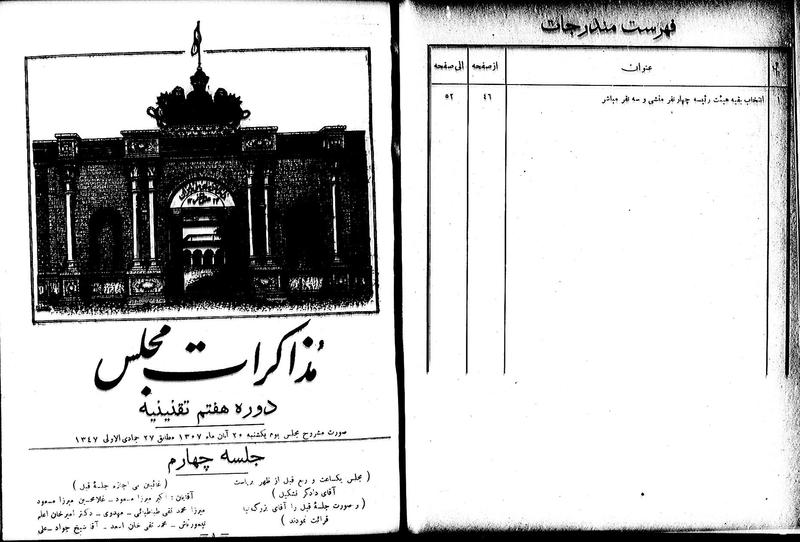 مذاکرات مجلس
دوره هفتم تقنینیه
صورت مشروح مجلس یوم یکشنبه ۲۰ آبان ماه ۱۳۰۷ مطابق ۲۷ جمادی الاولی ۱۳۴۷
جلسه چهارم
( مجلس یکساعت و ربع قبل از ظهر بریاست
آقای دادگر تشکیل )
( و صورت جلسۀ قبل را آقای بزرگ نیا
قرائت نمودند )
( غائبین بی اجازه جلسۀ قبل )
آقایان : اکبر میرزا مسعود - غلامحسین میرزا مسعود
میرزا محمد تقی طباطبائی - مهدوی - دکتر امیرخان اعلم
تیمورتاش - محمد تقی خان اسعد - آقا شیخ جواد
فهرست مندرجات
عنوان از صفحه الی صفحه
۱ انتخاب بقیه هیئت رئیسه چهار نفر منشی و سه نفر مباشر ۴۶ ۵۲